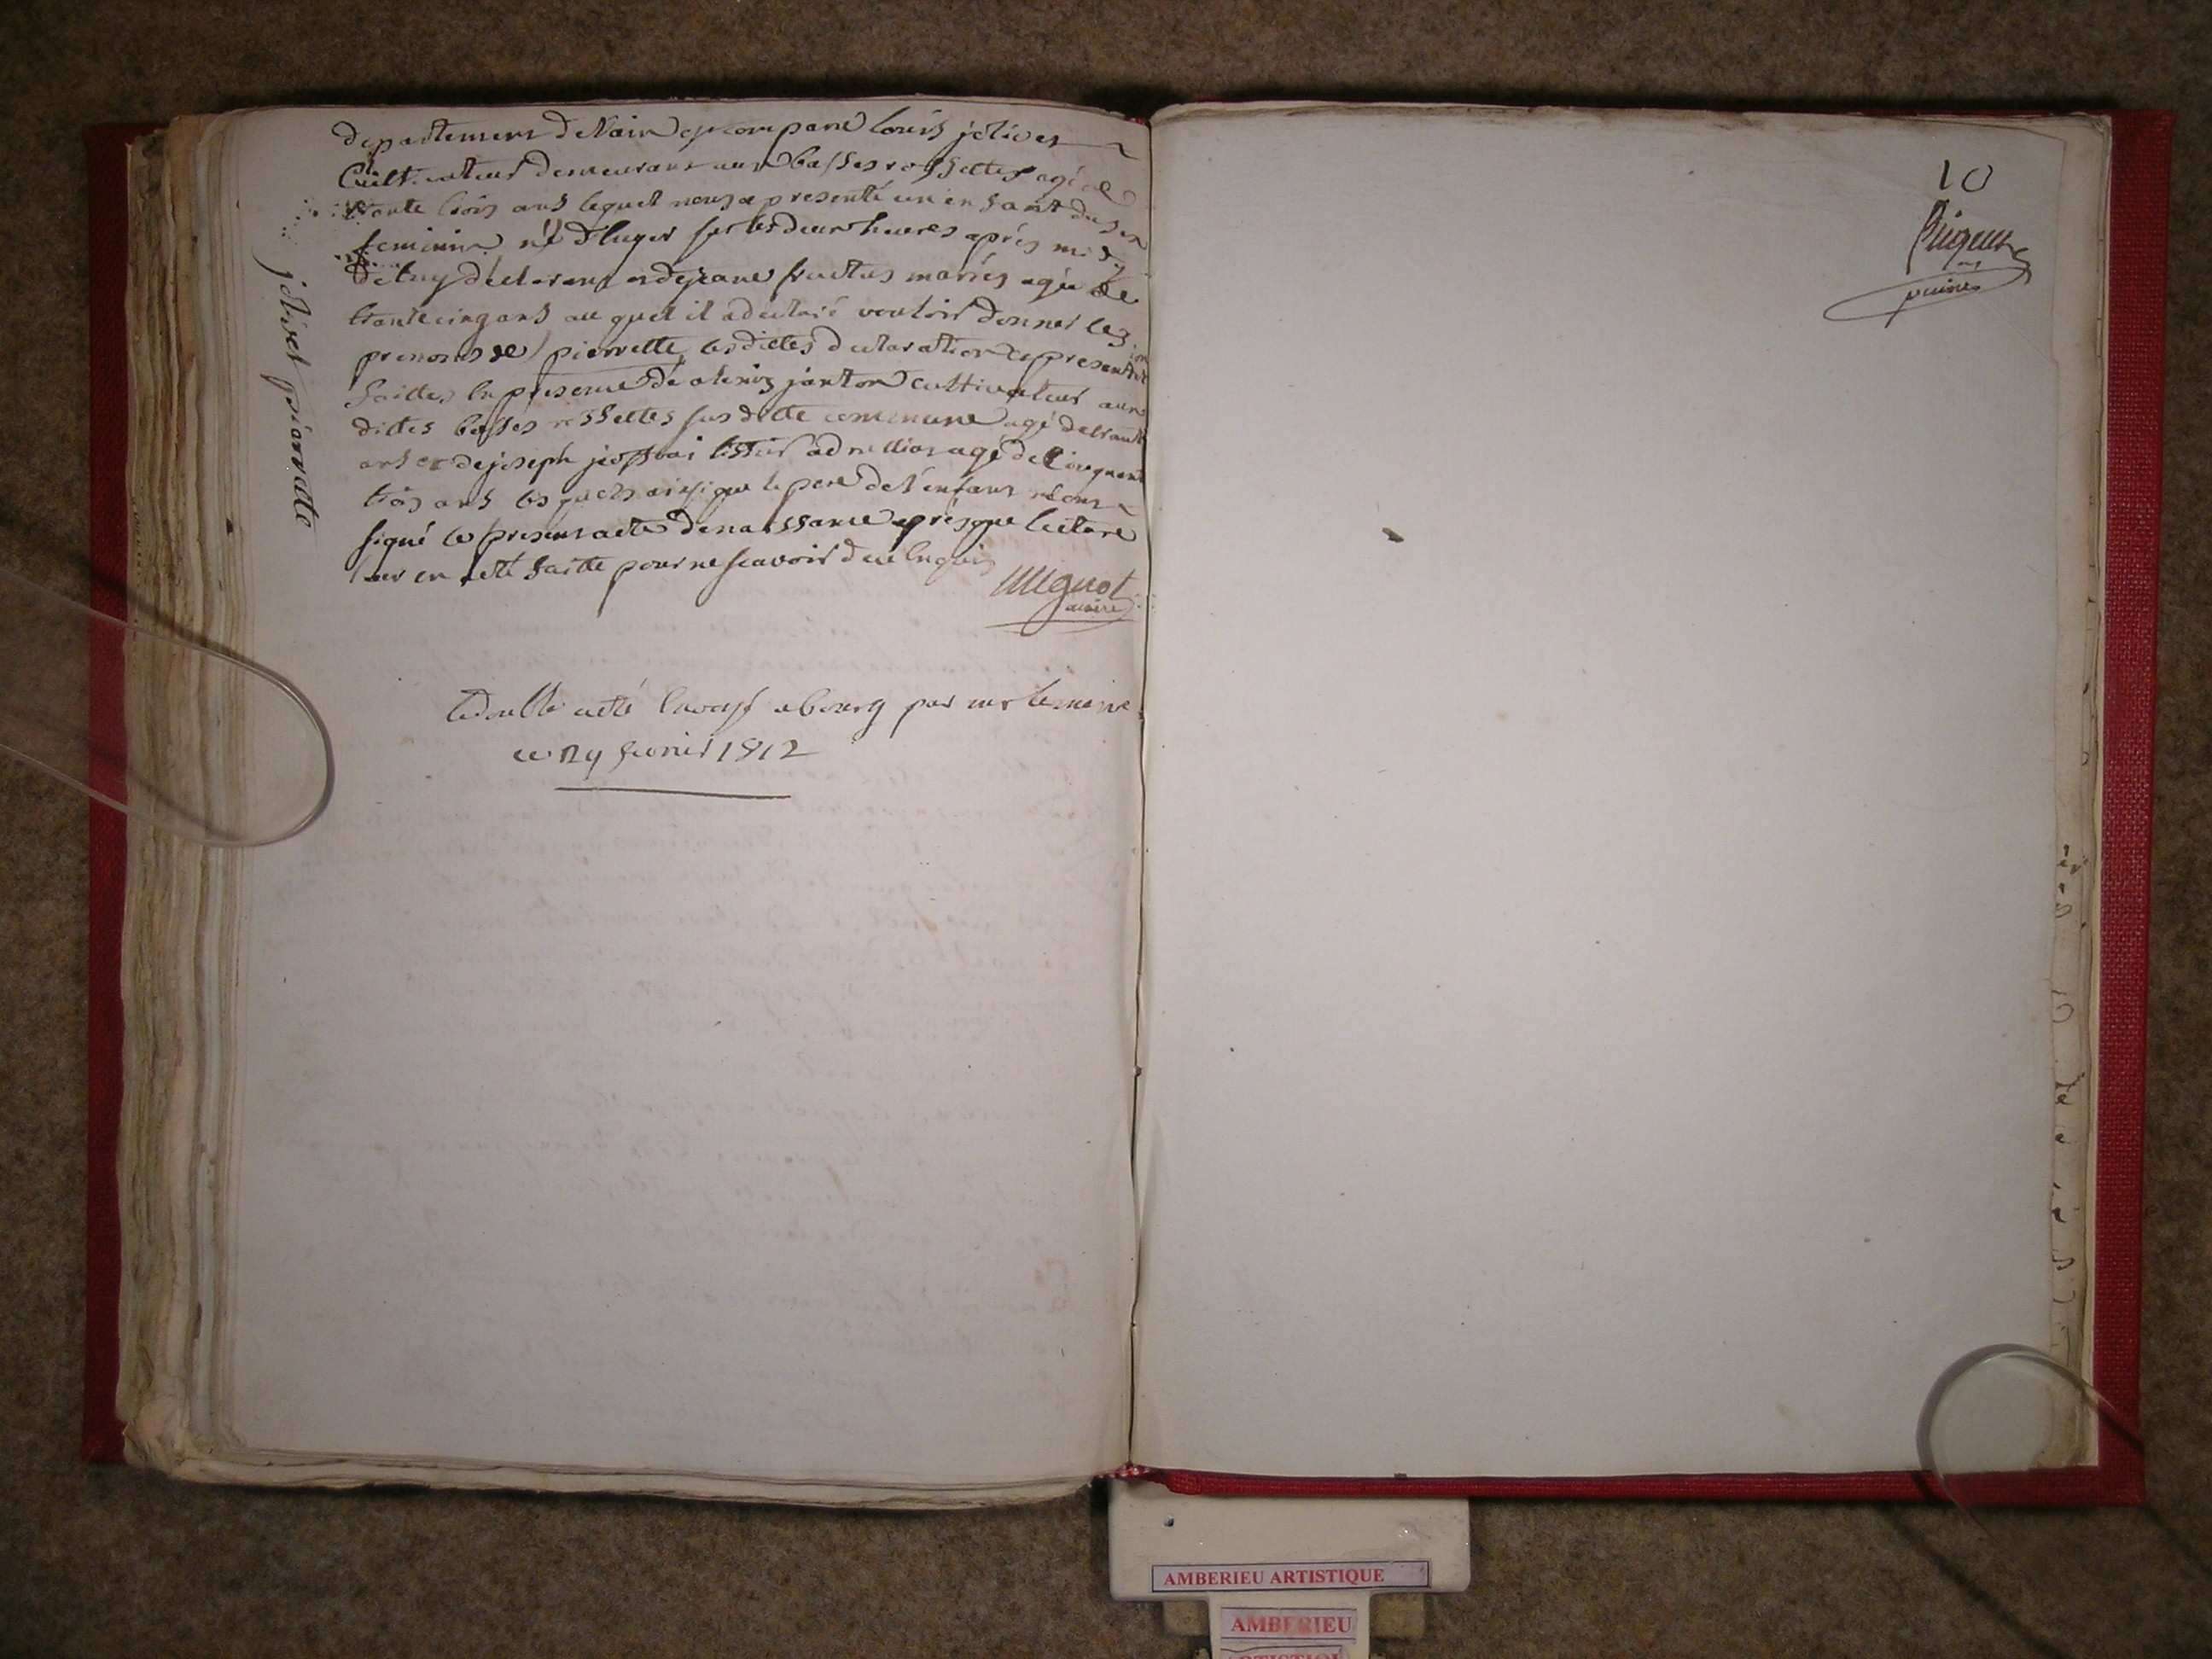 departement de l'ain est comparu louis jolivet
Cultivateur demeurant aux basses rossettes agé de
trante trois ans lequel nous a presenté un enfant du sex
feminin né d'huyer sur les deux heures après midy
de luy déclarant et de jeane fructus mariés agée de
trante cinq ans au quel il a declaré vouloir donner les
prenoms de pierrette, lesdittes declaration et presentation
faittes en presence de alexis janton cultivateur aux
dittes basses rossettes sus ditte commune agé de trante
ans et de joseph tissier agé de Cinquante
trois ans les quels ainsi que le pere de l'enfant n'ont
signé le present acte de naissance après que lecture
leur en a eté faitte pour ne scavoir de ce enquis
Mignot
maire
jolivet pierrette
le double a eté envoyé a bourg par mr le maire
ce 29 fevrier 1812
10
maire
AMBERIEU ARTISTIQUE
AMBERIEU
ARTISTIQUE